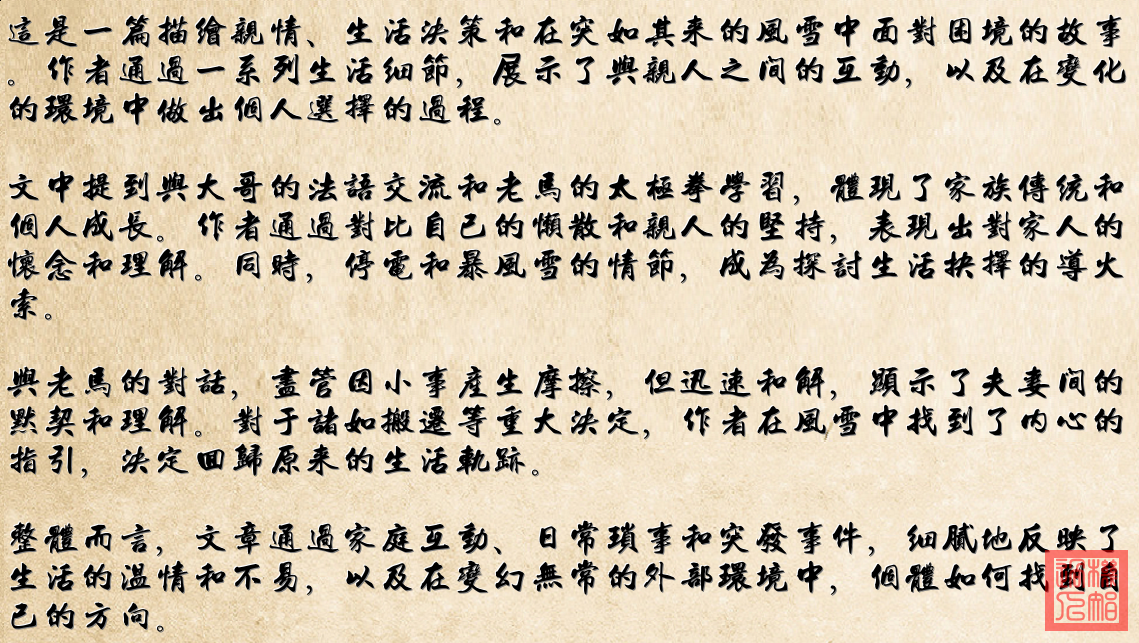 這是一篇描繪親情、生活決策和在突如其來的風雪中面對困境的故事
。作者通過一系列生活細節，展示了與親人之间的互動，以及在變化
的環境中做出個人選擇的過程。
文中提到與大哥的法語交流和老馬的太極拳學習，體現了家族傳統和
個人成長。作者通過對比自己的懶散和親人的堅持，表現出對家人的
懷念和理解。同時，停電和暴風雪的情節，成為探討生活抉擇的導火
索。
與老馬的對話，盡管因小事產生摩擦，但迅速和解，顯示了夫妻间的
默契和理解。對于諸如搬遷等重大決定，作者在風雪中找到了内心的
指引，決定回歸原来的生活軌跡。
整體而言，文章通過家庭互動、日常瑣事和突發事件，细膩地反映了
生活的溫情和不易，以及在變幻無常的外部環境中，個體如何找到自
己的方向。